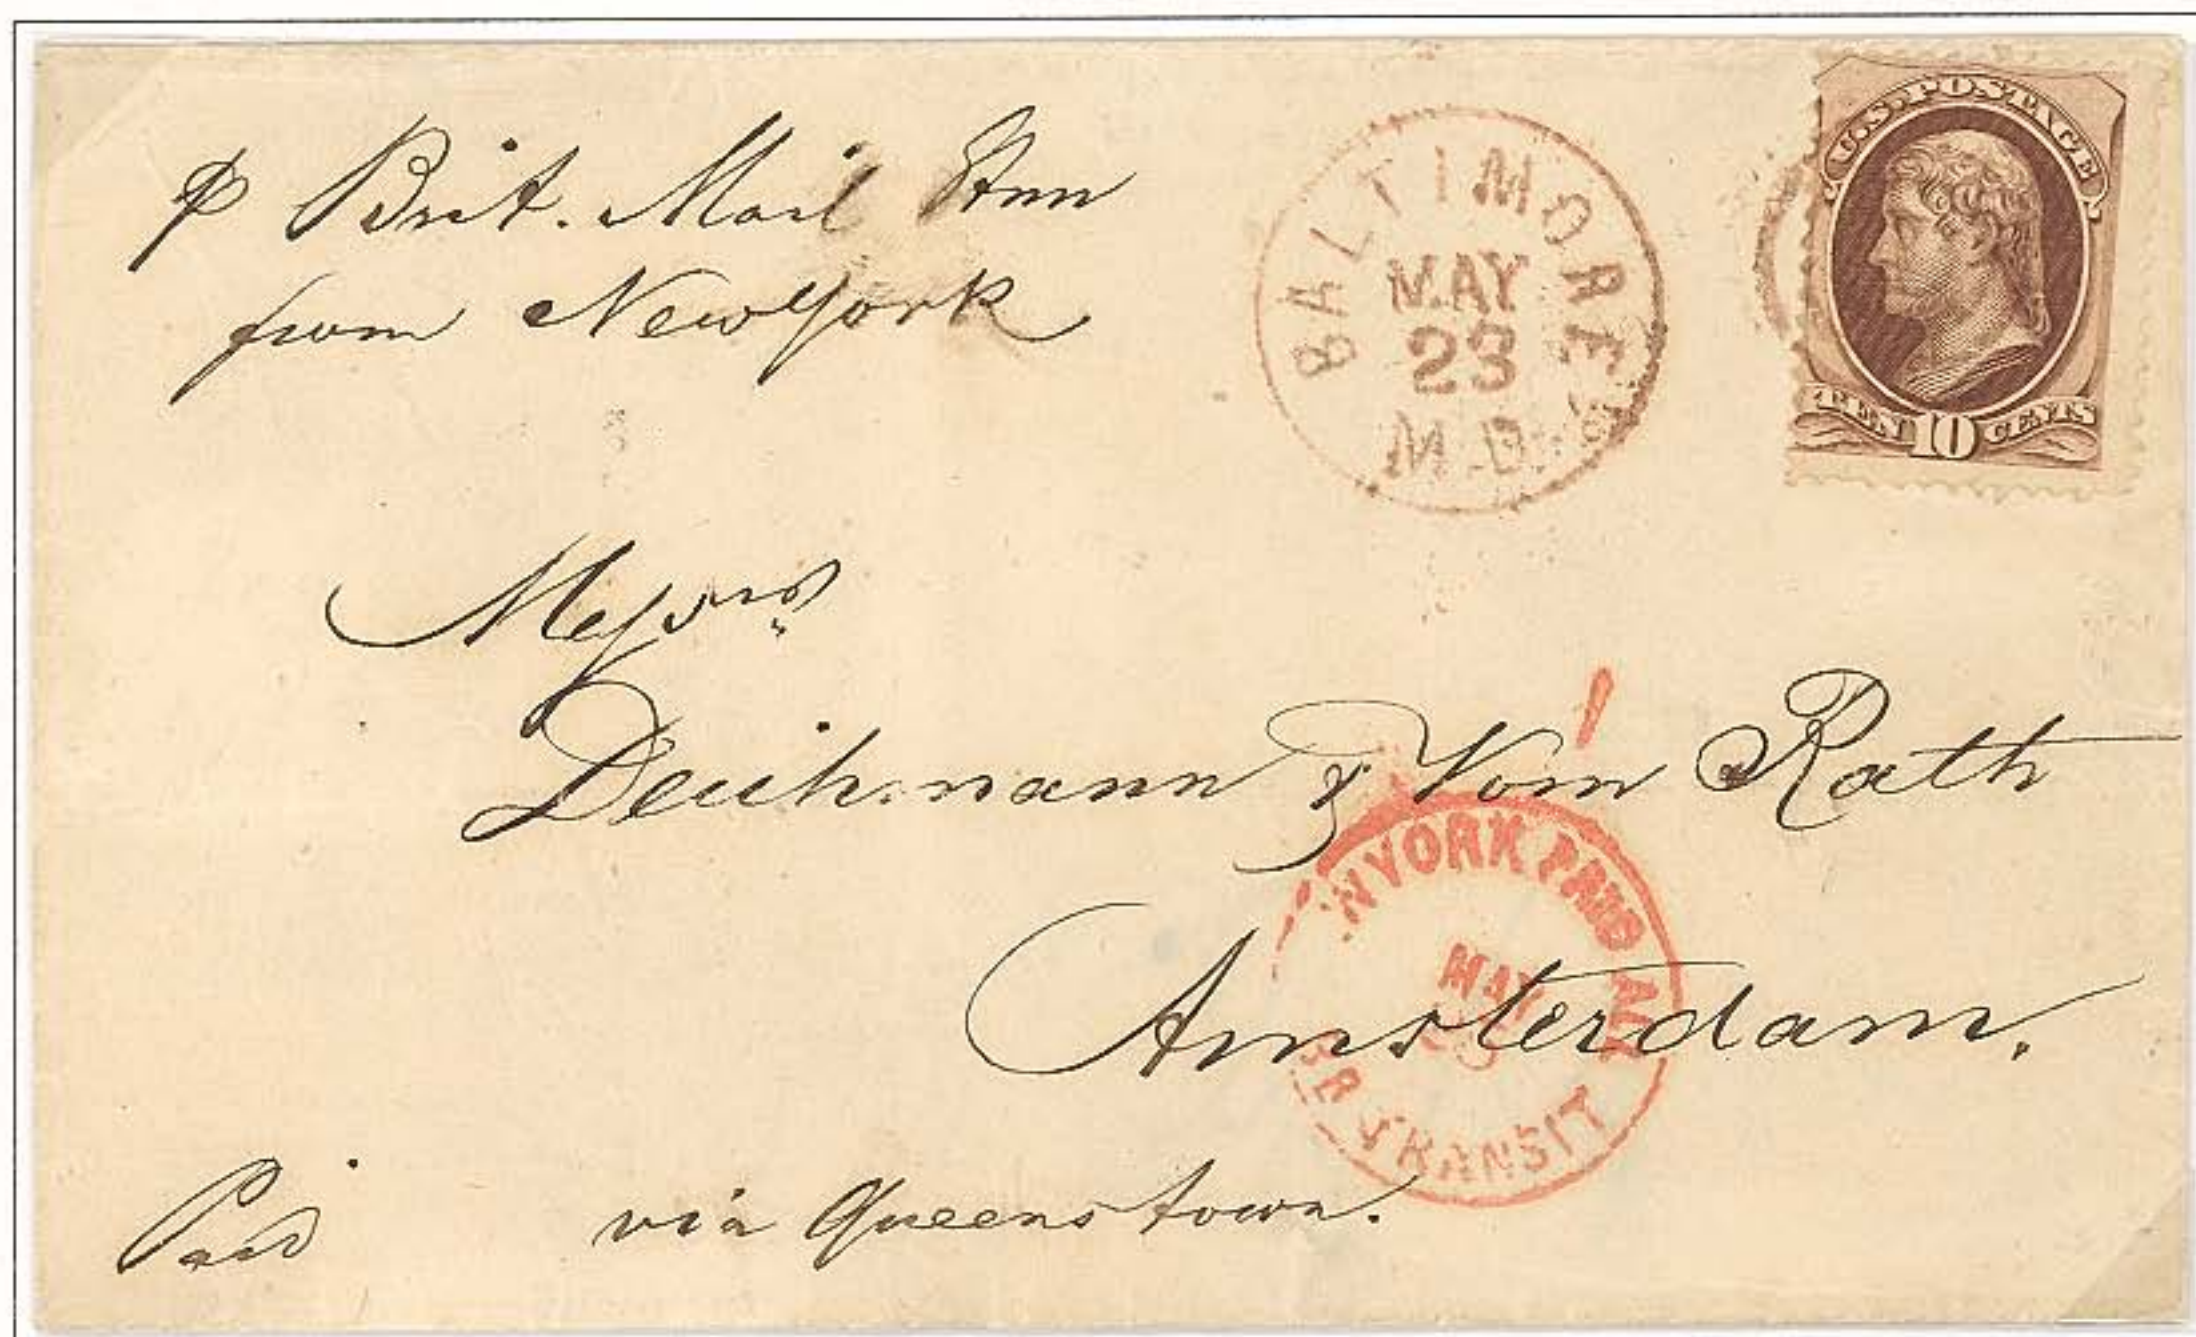 p Brit. Mail Stmr
from New York
BALTIMORE
MAY
23
MD.
U.S. POSTAGE
TEN 10 CENTS
Messrs
Deichmann & Vom Rath
Amsterdam.
N YORK PAID ALL
MAY
BR TRANSIT
Paid via Queenstown.